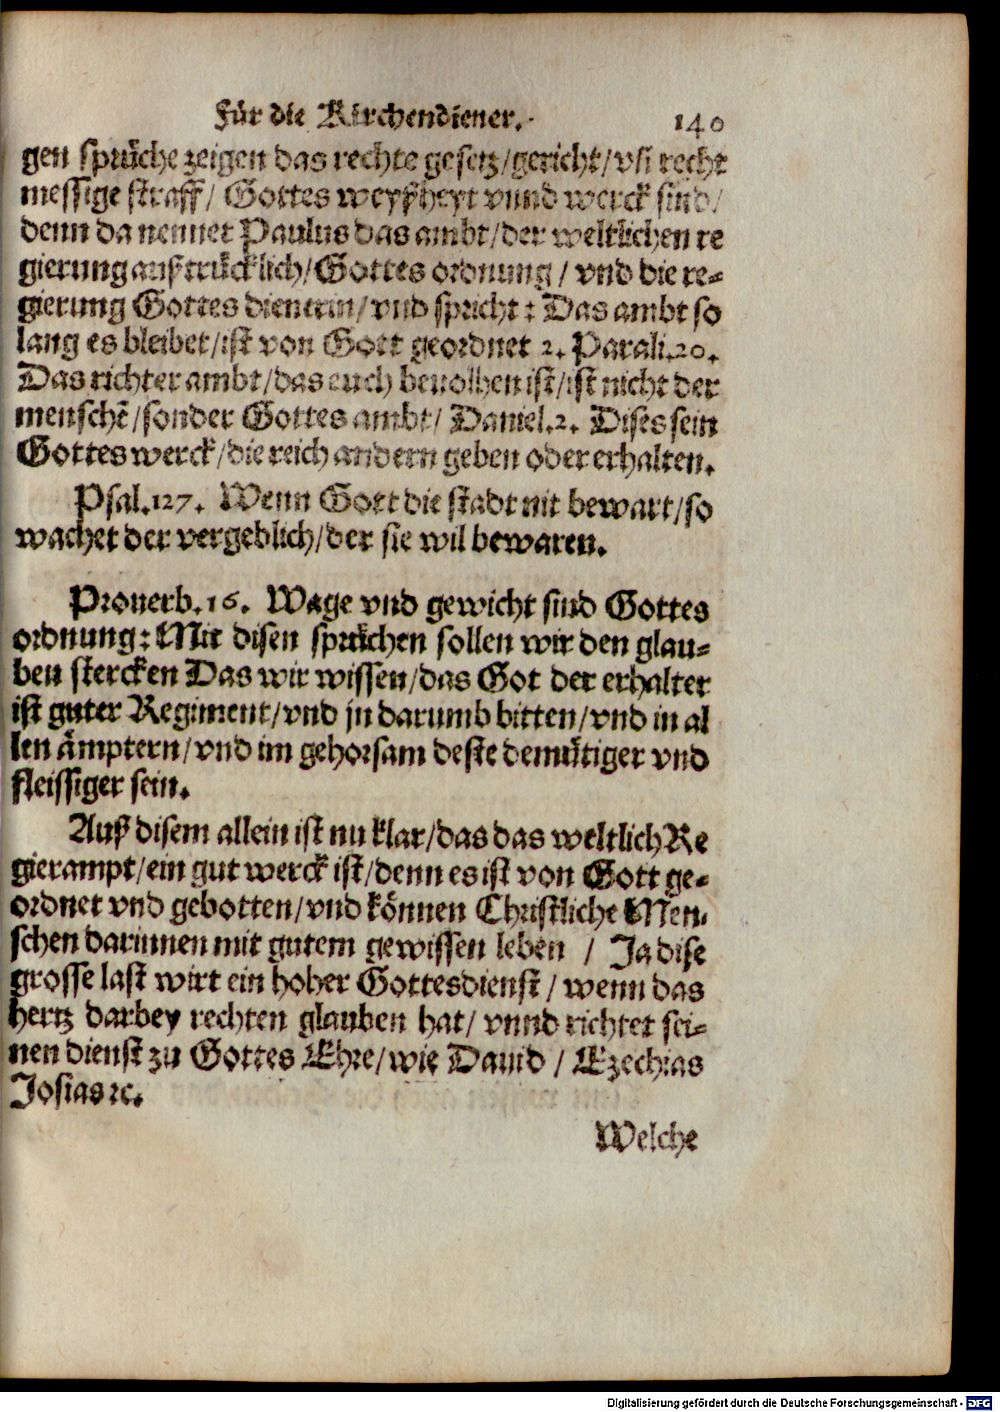 Für die Kirchendiener. 140
gen sprüche zeigen das rechte gesetz/gericht/vñ recht
messige straff/ Gottes weyßheyt vnnd werck sind/
denn da nennet Paulus das ambt/der weltlichen re
gierung außtrücklich/Gottes ordnung/ vnd die re-
gierung Gottes dienerin/vnd spricht: Das ambt so
lang es bleibet/ist von Gott geordnet 2. Parali.20.
Das richter ambt/das euch beuolhen ist/ist nicht der
menschē/sonder Gottes ambt/ Daniel.2. Dises sein
Gottes werck/die reich andern geben oder erhalten.
Psal.127. Wenn Gott die stadt nit bewart/so
wachet der vergeblich/der sie wil bewaren.
Prouerb.16. Wage vnd gewicht sind Gottes
ordnung: Mit disen sprüchen sollen wir den glau-
ben stercken Das wir wissen/das Got der erhalter
ist guter Regiment/vnd jn darumb bitten/vnd in al
len ämptern/vnd im gehorsam deste demütiger vnd
fleissiger sein.
Auß disem allein ist nu klar/das das weltlich Re
gierampt/ein gut werck ist/denn es ist von Gott ge-
ordnet vnd gebotten/vnd können Christliche Men-
schen darinnen mit gutem gewissen leben / Ja dise
grosse last wirt ein hoher Gottesdienst/ wenn das
hertz darbey rechten glauben hat/ vnnd richtet sei-
nen dienst zu Gottes Ehre/wie Dauid / Ezechias
Josias ꝛc.
Welche
Digitalisierung gefördert durch die Deutsche Forschungsgemeinschaft - DFG